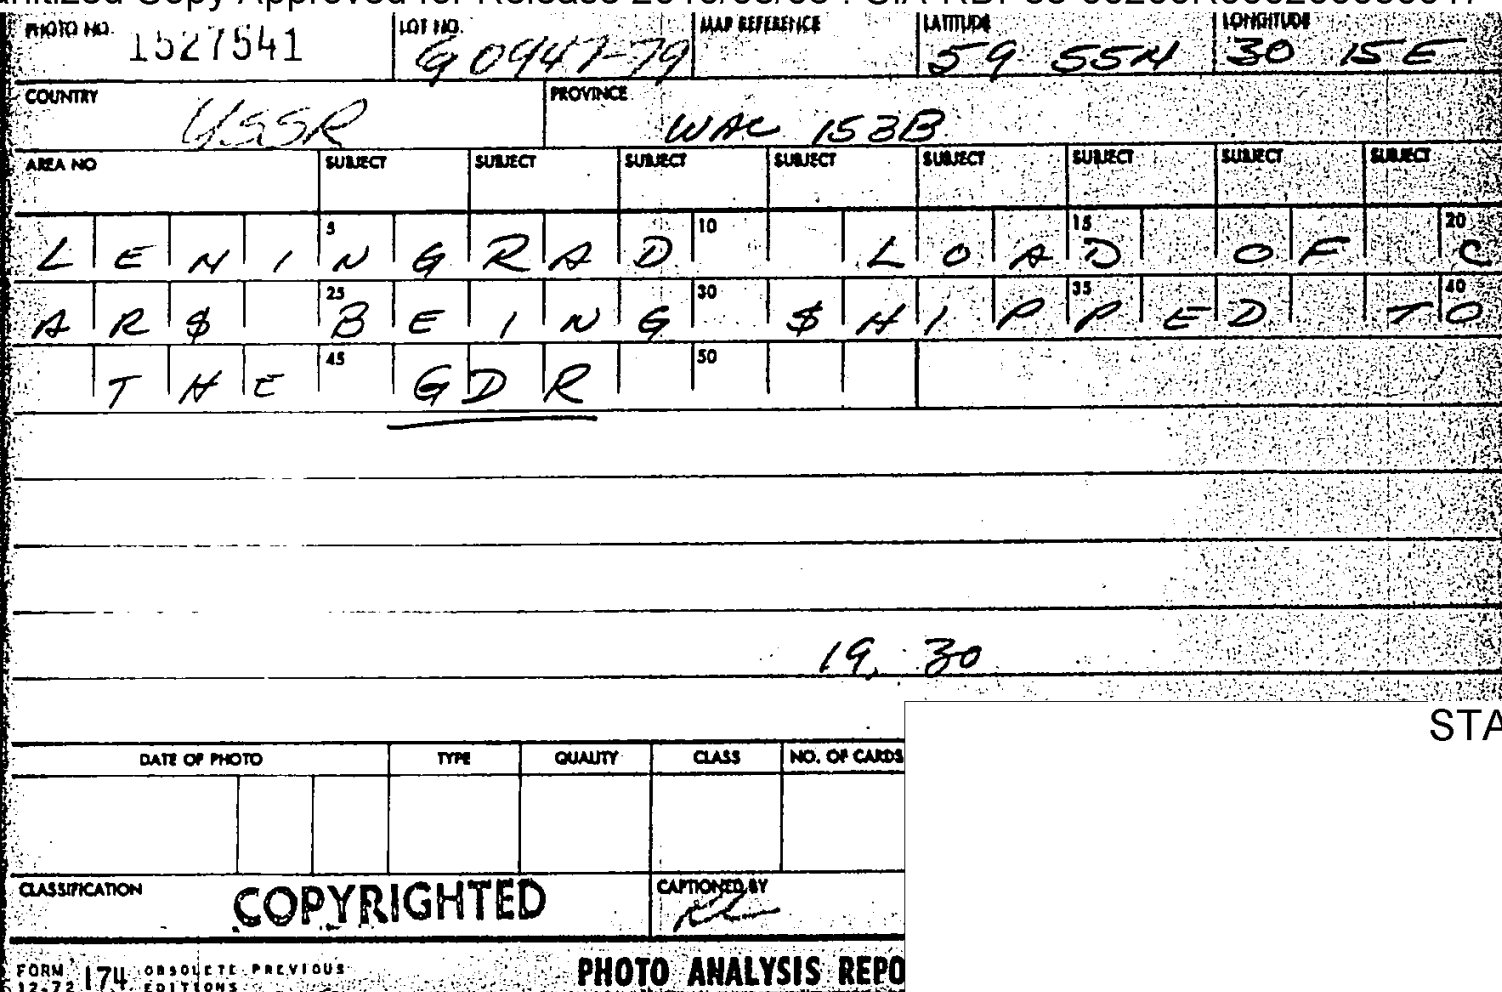 PHOTO NO. 1527541 LOT NO. G0947-79 MAP REFERENCE LATITUDE 59 55N LONGITUDE 30 15E
COUNTRY USSR PROVINCE WAC 153B
AREA NO SUBJECT SUBJECT SUBJECT SUBJECT SUBJECT SUBJECT SUBJECT SUBJECT
5 10 15 20
LENINGRAD LOAD OF C
25 30 35 40
AR$ BEING $HIPPED TO
45 50
THE GDR
19, 30
STA
DATE OF PHOTO TYPE QUALITY CLASS NO. OF CARDS
CLASSIFICATION COPYRIGHTED CAPTIONED BY
FORM 12-72 174 OBSOLETE PREVIOUS EDITIONS PHOTO ANALYSIS REPO